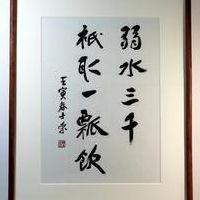 弱水三千
祇取一瓢飲
壬寅春士豪